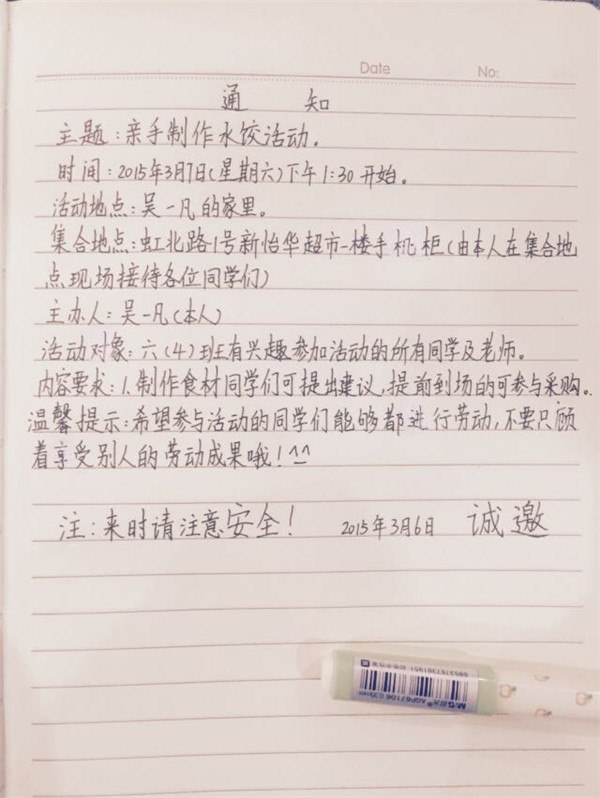 Date
No:
通 知
主题：亲手制作水饺活动。
时间：2015年3月7日（星期六）下午1:30开始。
活动地点：吴一凡的家里。
集合地点：虹北路1号新怡华超市一楼手机柜（由本人在集合地
点现场接待各位同学们）
主办人：吴一凡（本人）
活动对象：六（4）班有兴趣参加活动的所有同学及老师。
内容要求：1、制作食材同学们可提出建议，提前到场的可参与采购。
温馨提示：希望参与活动的同学们能够都进行劳动，不要只顾
着享受别人的劳动成果哦！^^
注：来时请注意安全！ 2015年3月6日 诚邀
M&G 晨光 AGP67106 0.35mm